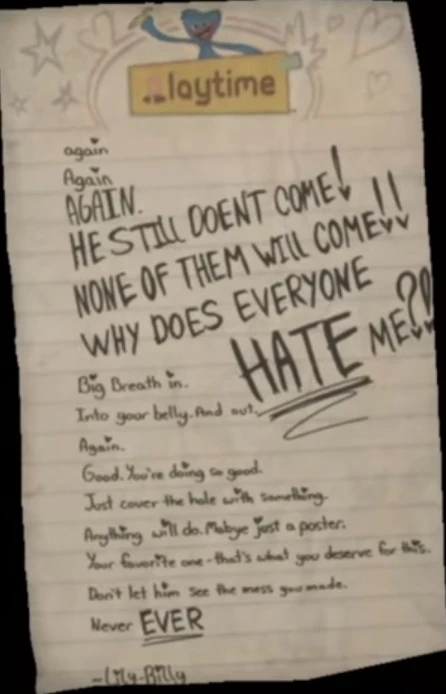 laytime
again
Again
AGAIN.
HE STILL DOENT COME!
NONE OF THEM WILL COME!!
WHY DOES EVERYONE
HATE ME?!
Big Breath in.
Into your belly. And out.
Again.
Good. You're doing so good.
Just cover the hole with something.
Anything will do. Mabye just a poster.
Your favorite one-that's what you deserve for this.
Don't let him see the mess you made.
Never EVER
-Lily-Billy